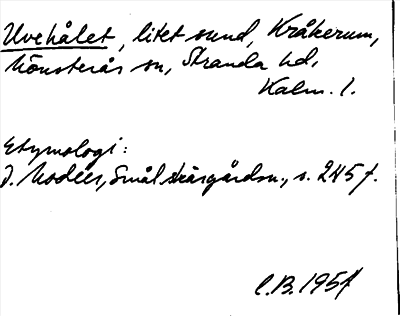 Uvehålet, litet sund, Kråkerum,
Mönsterås sn, Stranda hd,
Kalm. l.
Etymologi:
J. Modéer, Smål skärgårdsn., s. 245 f.
C.B. 1957